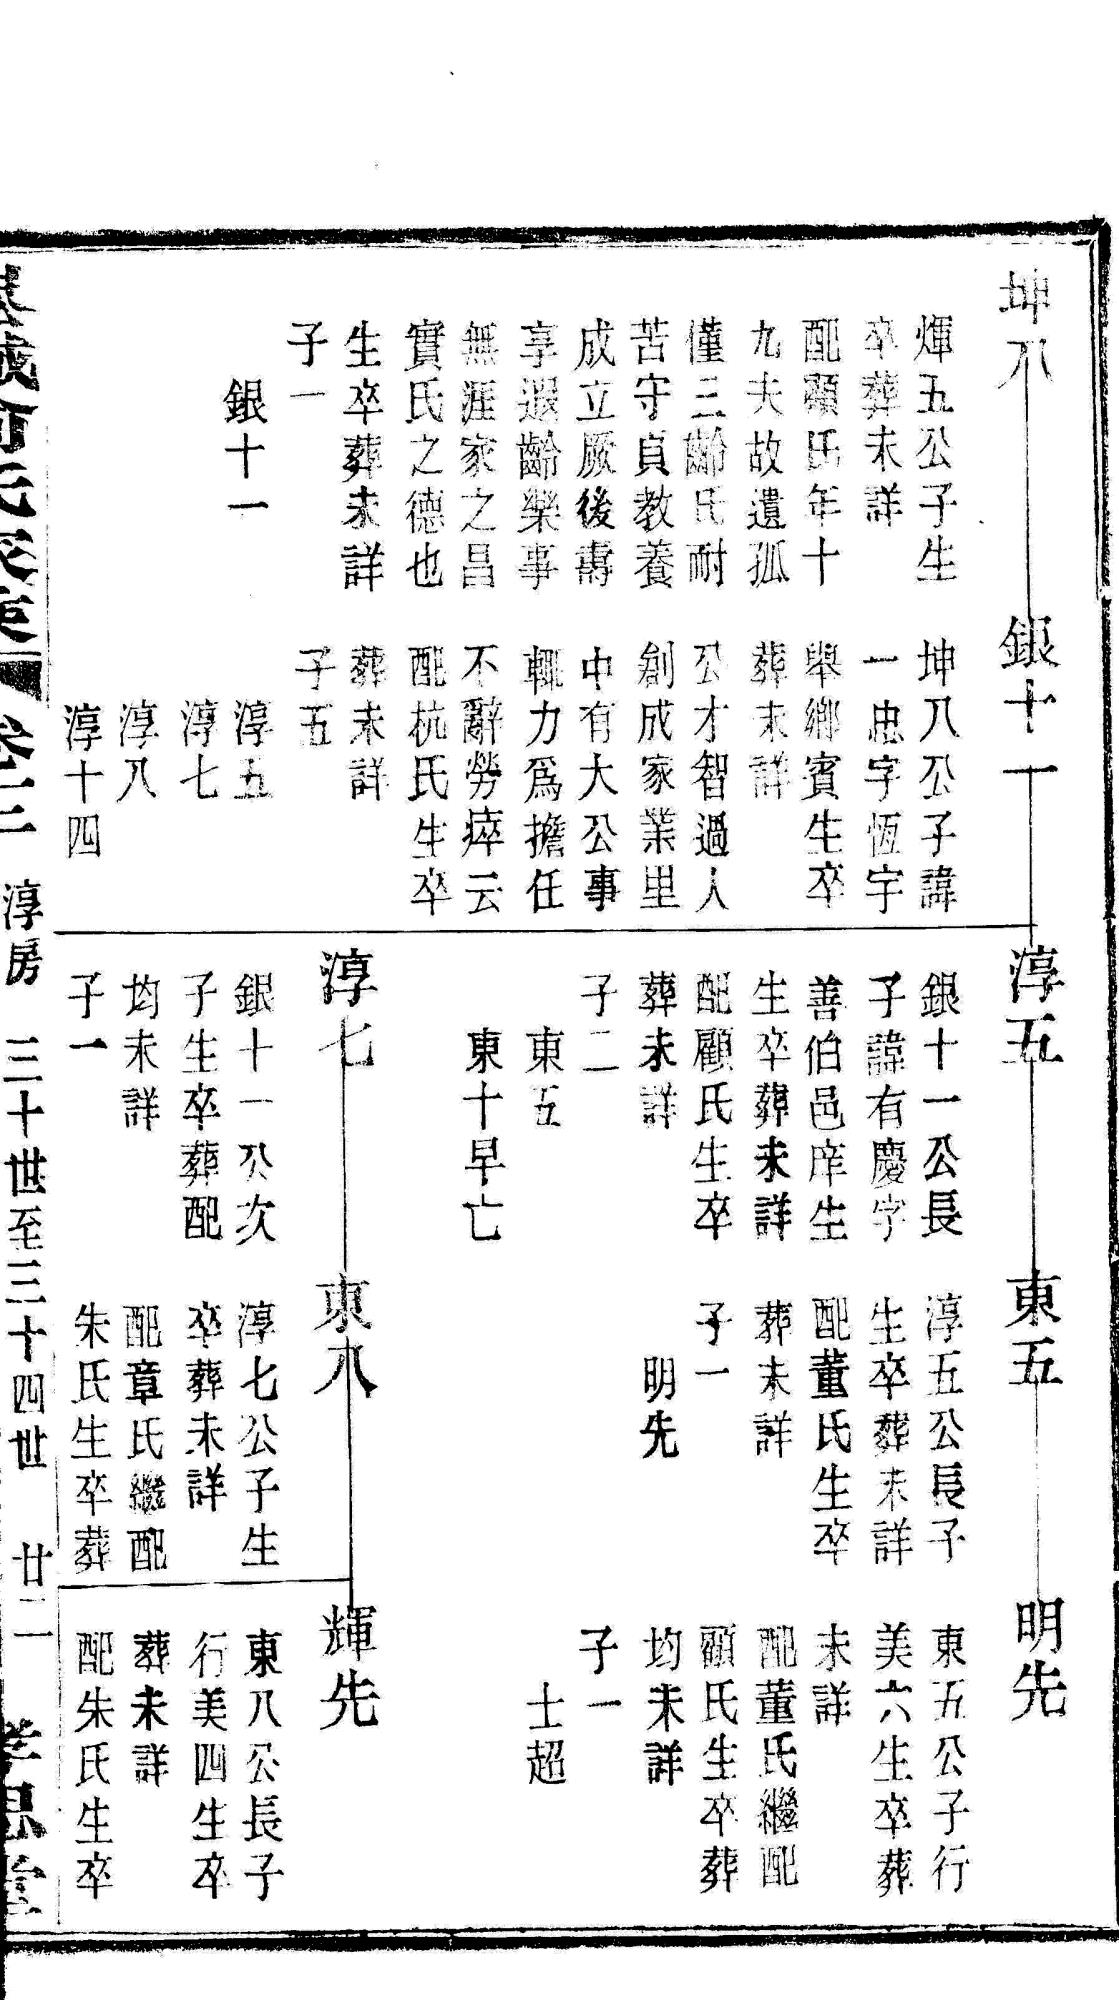 坤八
煇五公子生
卒葬未詳
配顧氏年十
九夫故遺孤
僅三齡氏耐
苦守貞教養
成立厥後壽
享遐齡榮事
無涯家之昌
實氏之德也
生卒葬未詳
子一
銀十一
銀十一
坤八公子諱
一忠字恆宇
舉鄉賓生卒
葬未詳
公才智過人
創成家業里
中有大公事
輒力爲擔任
不辭勞瘁云
配杭氏生卒
葬未詳
子五
淳五
淳七
淳八
淳十四
淳五
銀十一公長
子諱有慶字
善伯邑庠生
生卒葬未詳
配顧氏生卒
葬未詳
子二
東五
東十早亡
東五
淳五公長子
生卒葬未詳
配董氏生卒
葬未詳
子一
明先
明先
東五公子行
美六生卒葬
未詳
配董氏繼配
顧氏生卒葬
均未詳
子一
士超
淳七
銀十一公次
子生卒葬配
均未詳
子一
東八
淳七公子生
卒葬未詳
配章氏繼配
朱氏生卒葬
輝先
東八公長子
行美四生卒
葬未詳
配朱氏生卒
俞氏家乘 卷二 淳房 三十世至三十四世 廿二 孝思堂